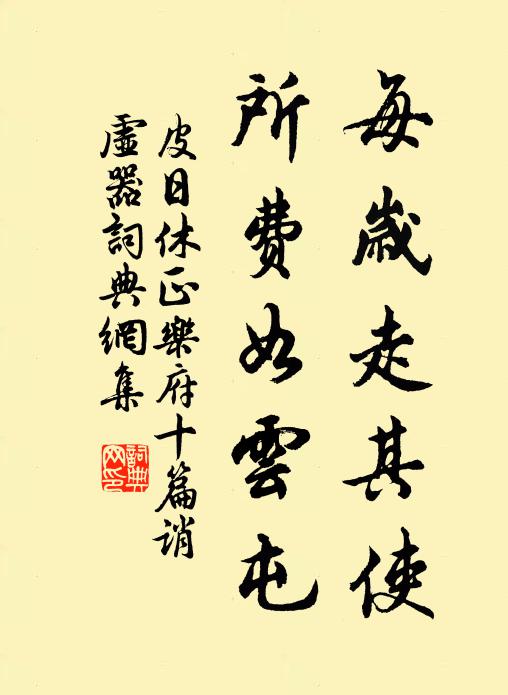 每歲走其使
所費如雲屯
皮日休正樂府十篇誚
虛器詞典網集
詞典
网印